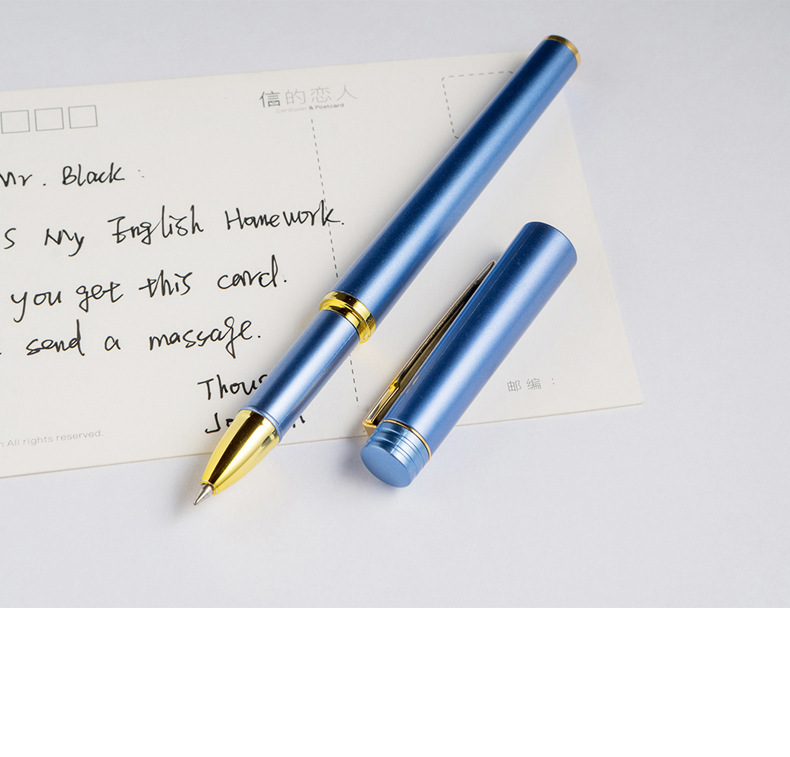 信的恋人
& Postcard
Mr. Black:
s My English Homework.
you get this card.
send a massage.
邮编:
All rights reserved.